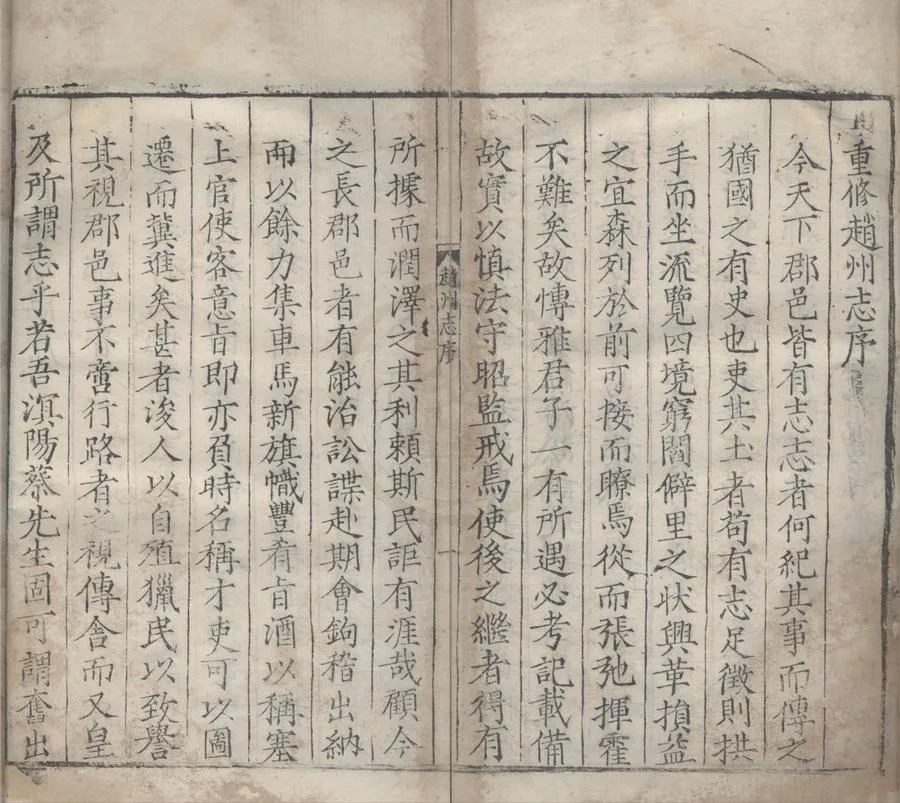 重修趙州志序
今天下郡邑皆有志志者何紀其事而傳之
猶國之有史也吏其土者苟有志足徵則拱
手而坐流覽四境窮閻僻里之状興革損益
之宜森列於前可接而瞭焉從而張弛揮霍
不難矣故愽雅君子一有所遇必考記載備
故實以慎法守昭監戒焉使後之繼者得有
趙州志序
一
所據而潤澤之其利頼斯民詎有涯哉顧今
之長郡邑者有能治訟諜赴期會鉤稽出納
而以餘力集車馬新旗幟豐肴旨酒以稱塞
上官使客意旨即亦負時名稱才吏可以圖
遷而冀進矣甚者浚人以自殖獵民以致譽
其視郡邑事不啻行路者之視傳舍而又皇
及所謂志乎若吾滇陽蔡先生固可謂奮出